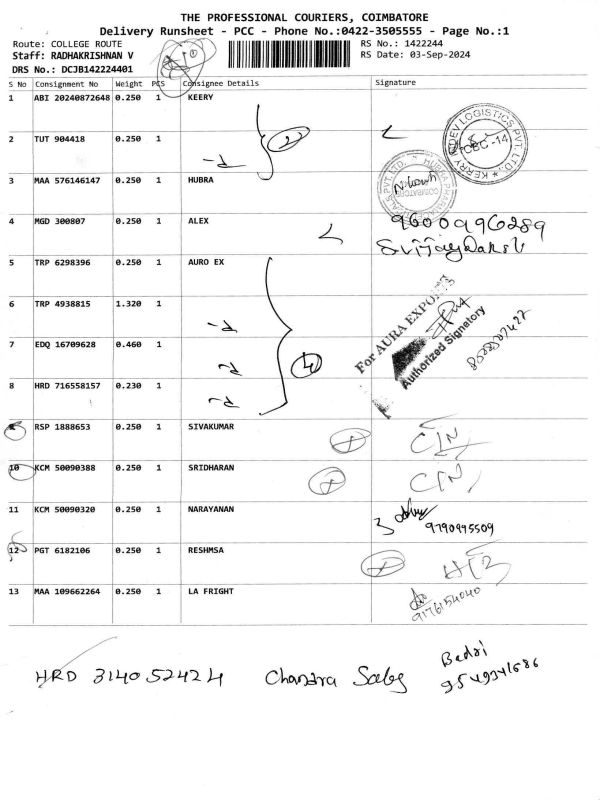 THE PROFESSIONAL COURIERS, COIMBATORE
Delivery Runsheet - PCC - Phone No.:0422-3505555 - Page No.:1
Route: COLLEGE ROUTE RS No.: 1422244
Staff: RADHAKRISHNAN V RS Date: 03-Sep-2024
DRS No.: DCJB142224401
S No Consignment No Weight PCS Consignee Details Signature
1 ABI 20240872648 0.250 1 KEERY
2
2 TUT 904418 0.250 1
KERRY INDEV LOGISTICS PVT. LTD.
CBC-14
3 MAA 576146147 0.250 1 HUBRA
4 MGD 300807 0.250 1 ALEX
9600996289
5 TRP 6298396 0.250 1 AURO EX
6 TRP 4938815 1.320 1
For AURA EXPORTS
Authorized Signatory
7 EDQ 16709628 0.460 1
4
8 HRD 716558157 0.230 1
9 RSP 1888653 0.250 1 SIVAKUMAR
10 KCM 50090388 0.250 1 SRIDHARAN
11 KCM 50090320 0.250 1 NARAYANAN
9790995509
12 PGT 6182106 0.250 1 RESHMSA
13 MAA 109662264 0.250 1 LA FRIGHT
9176154040
HRD 3140 52424 Chandra
Badri